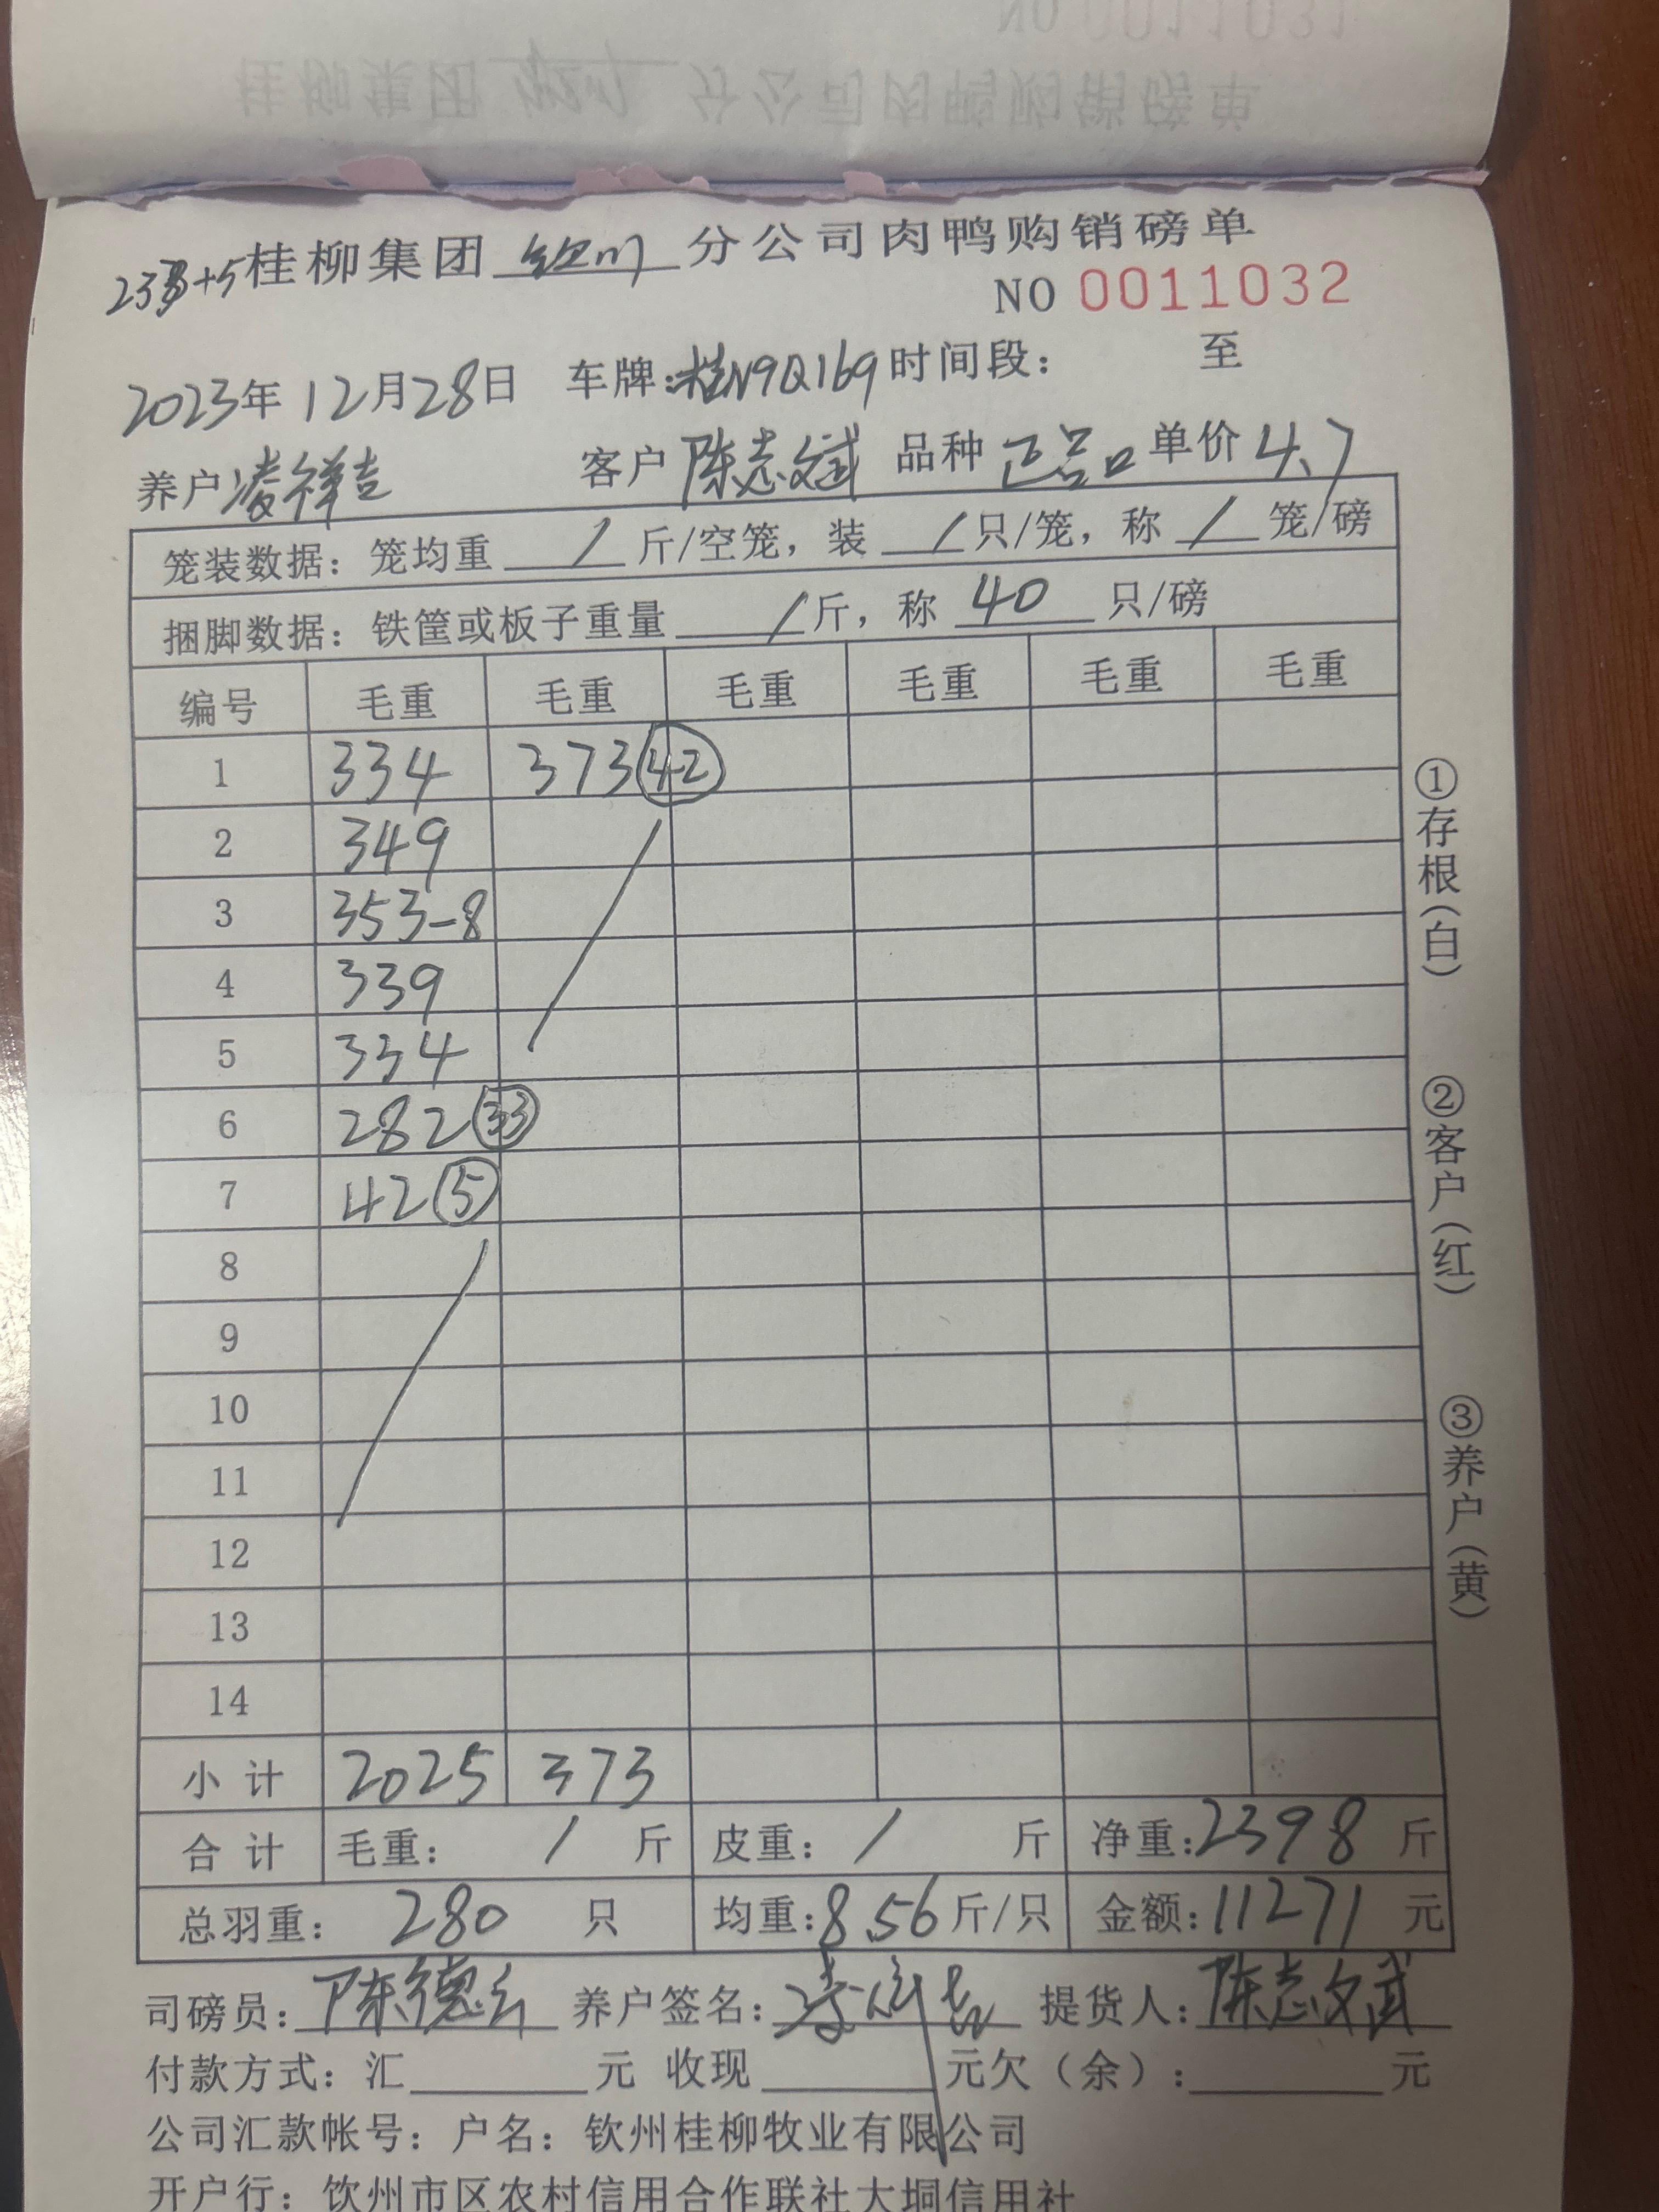 桂柳集团 钦州 分公司肉鸭购销磅单
NO 0011032
2023年12月28日 车牌:桂N9Q169 时间段: 至
养户 凌祥吉 客户 陈志斌 品种 正品 单价 4.7
笼装数据: 笼均重 / 斤/空笼, 装 / 只/笼, 称 / 笼/磅
捆脚数据: 铁筐或板子重量 / 斤, 称 40 只/磅
编号 毛重 毛重 毛重 毛重 毛重 毛重
1 334 373 42
2 349
3 353-8
4 339
5 334
6 282 33
7 42 5
8
9
10
11
12
13
14
小计 2025 373
合计 毛重: / 斤 皮重: / 斤 净重:2398 斤
总羽重: 280 只 均重:8.56 斤/只 金额:11271 元
司磅员: 养户签名: 提货人:陈志斌
付款方式: 汇 元 收现 元欠(余): 元
公司汇款帐号: 户名: 钦州桂柳牧业有限公司
开户行: 钦州市区农村信用合作联社大垌信用社
①存根(白)
②客户(红)
③养户(黄)